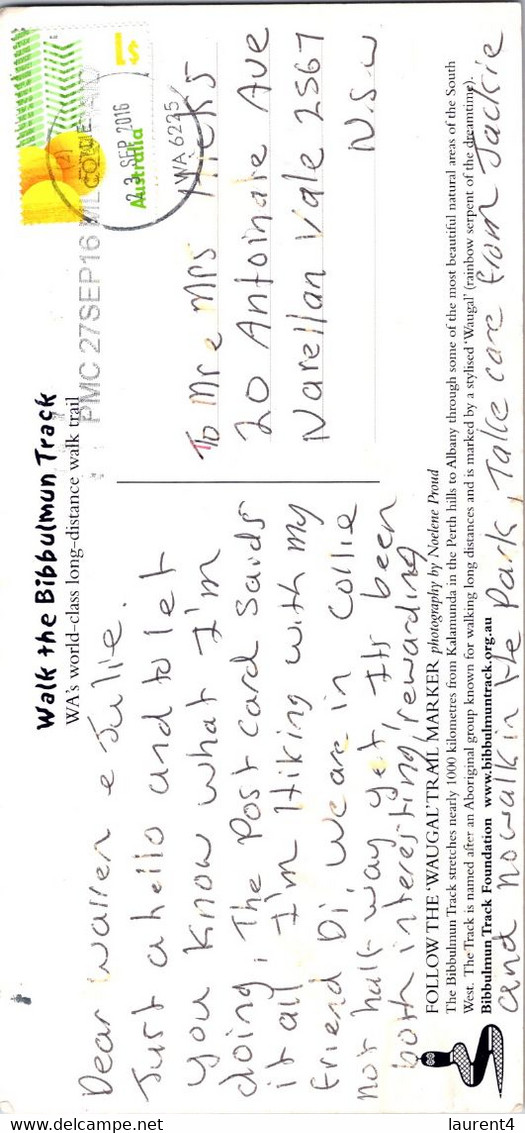 Walk the Bibbulmun Track
WA's world-class long-distance walk trail
Dear Warren e Julie.
Just a hello and to let
you know what I'm
doing, The Post card Saids
it all I'm Hiking with my
friend Di, we are in Collie
not half way yet Its been
both interesting, rewarding
and no walk in the Park, Take care from Jackie
1$
Australia
23 SEP 2016
WA 6225
PMC 27SEP16 ML
To Mr e Mrs Hicks
20 Antoinale Ave
Narellan Vale 2567
N.S.W
FOLLOW THE 'WAUGAL' TRAIL MARKER photography by Noelene Proud
The Bibbulmun Track stretches nearly 1000 kilometres from Kalamunda in the Perth hills to Albany through some of the most beautiful natural areas of the South
West. The Track is named after an Aboriginal group known for walking long distances and is marked by a stylised 'Waugal' (rainbow serpent of the dreamtime).
Bibbulmun Track Foundation www.bibbulmuntrack.org.au
laurent4